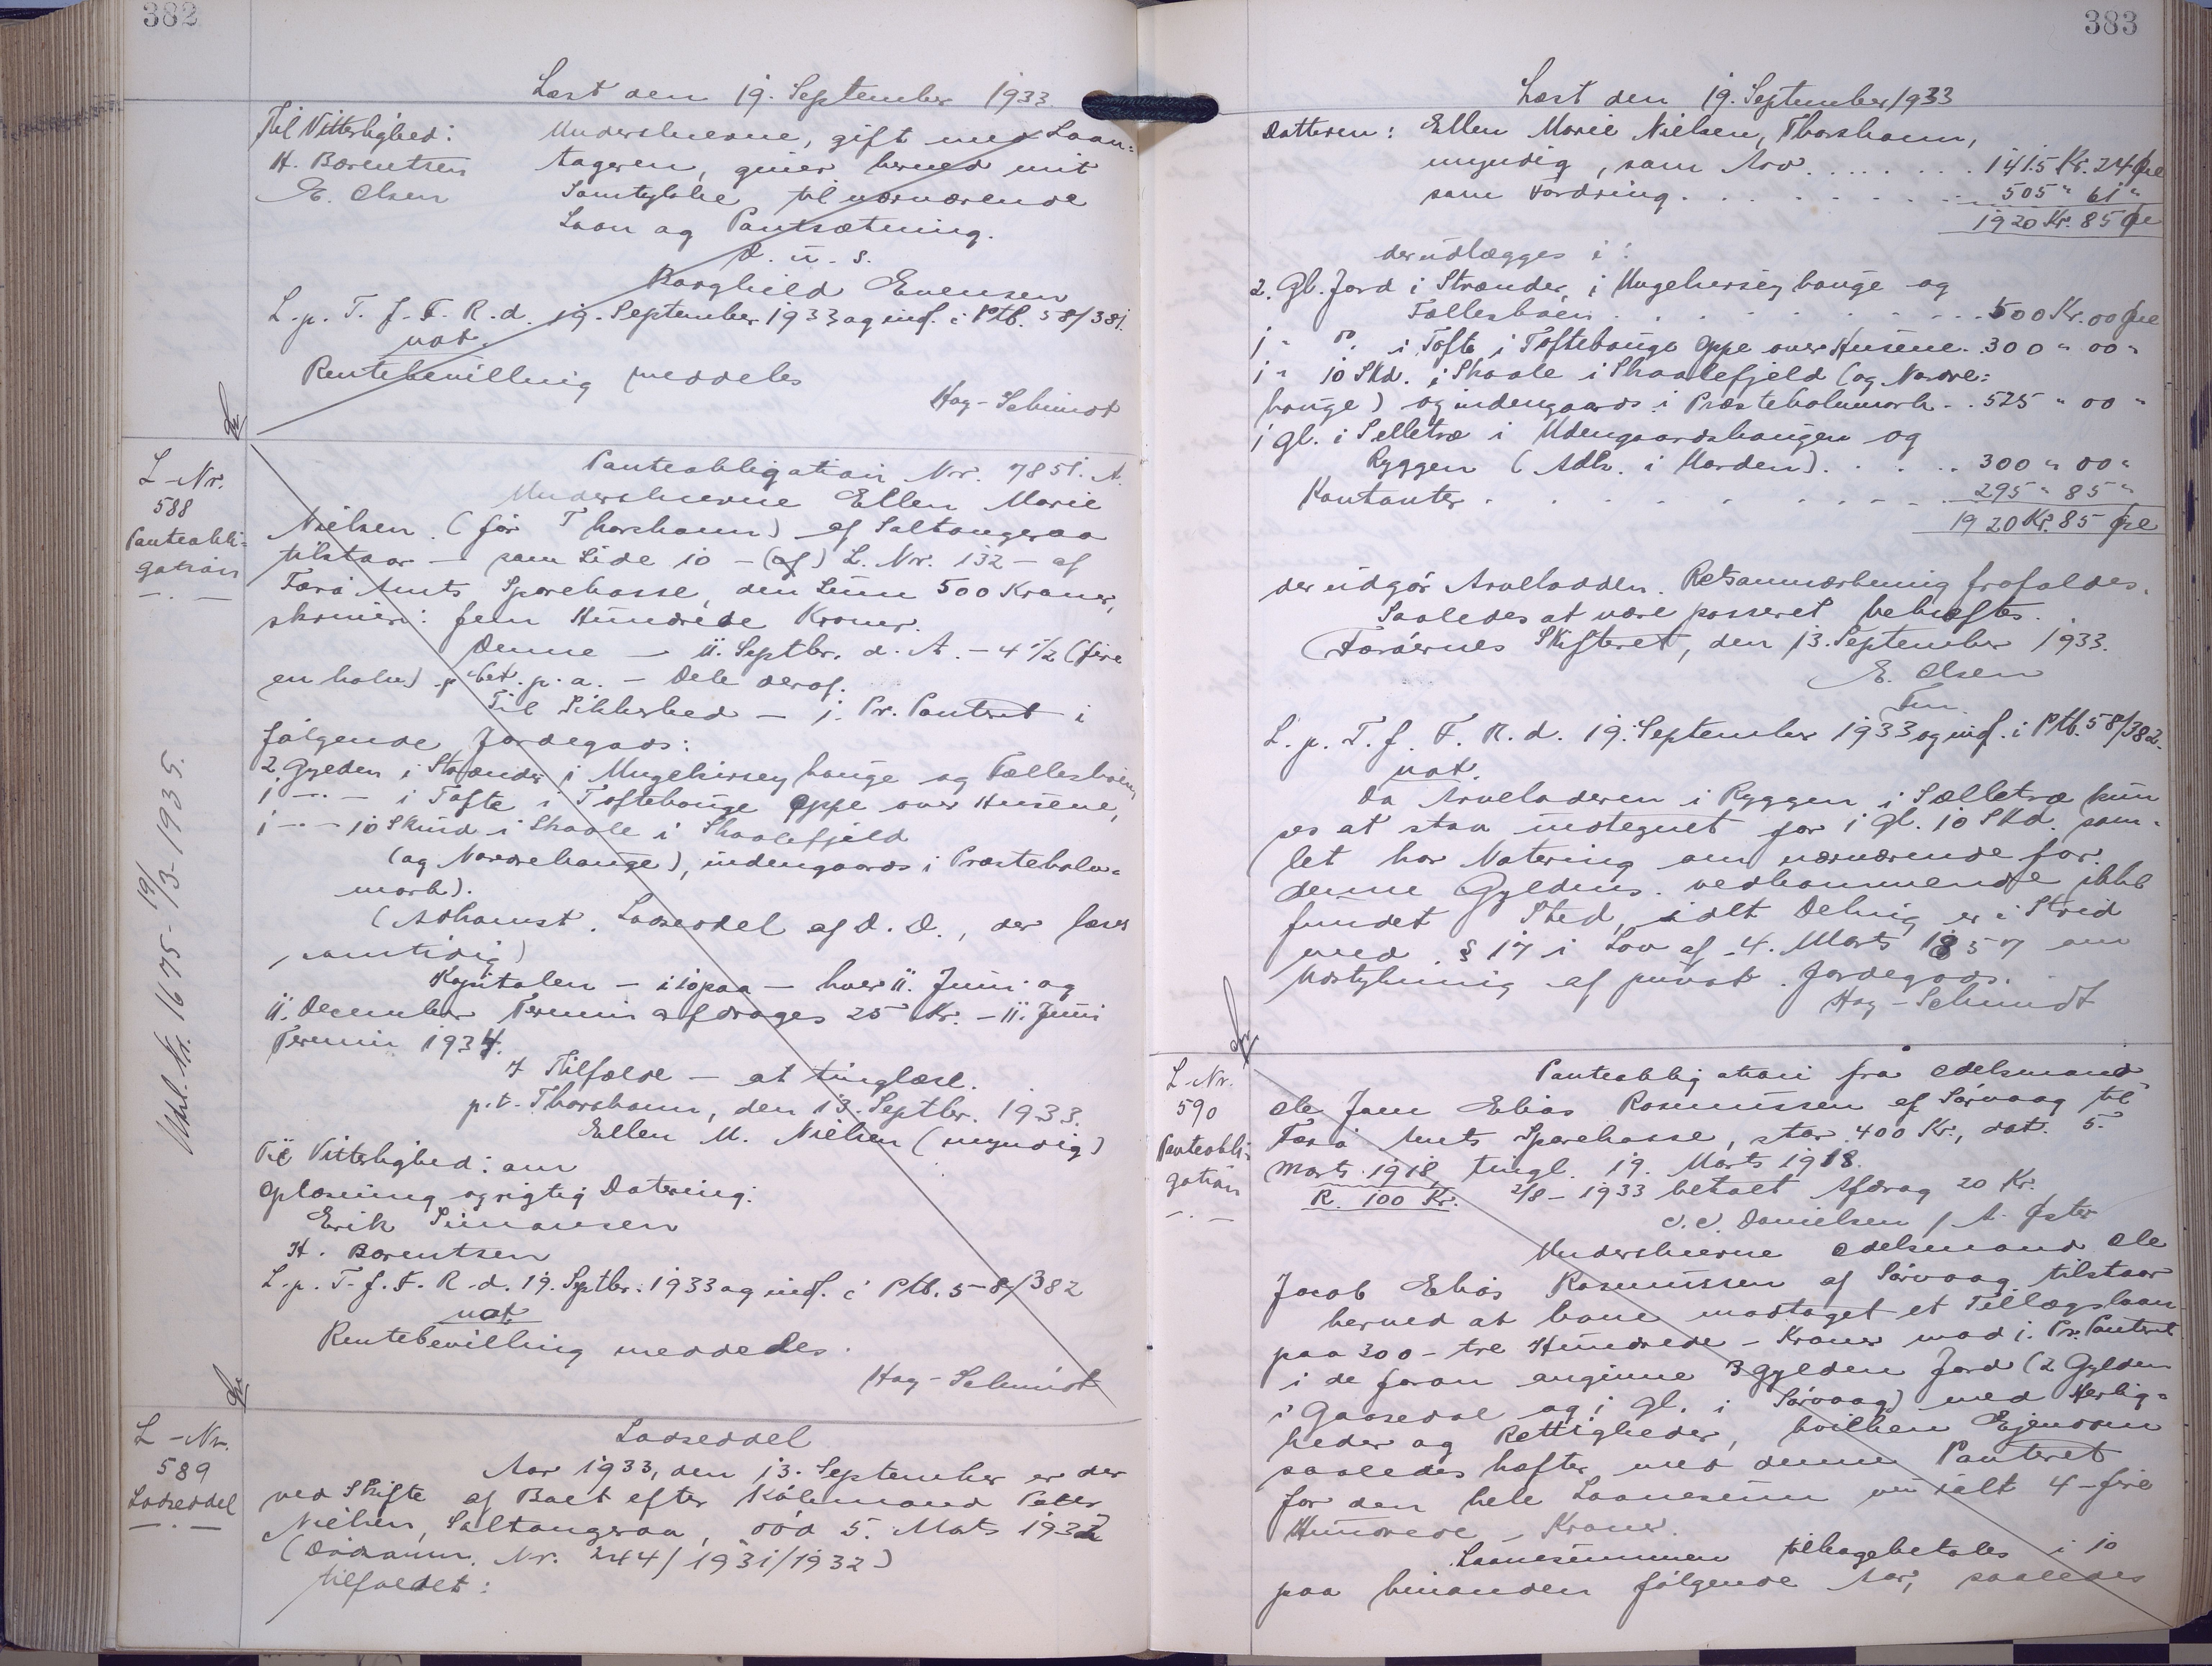 382
Læst den 19. September 1933.
Til Vitterlighed:
H. Berentsen
E. Olsen
Underskrevne, gift med Laan=
tageren, giver herved mit
Samtykke til nærværende
Laan og Pantsætning.
D. u. s.
Borghild Evensen
L. p. T. f. F. R. d. 19. September 1933 og indf. i Ptb. 58/381.
not.
Rentebevilling meddeles
Hay-Schmidt
L-Nr.
588
Panteobli=
gation
Udsl. Nr. 1675 - 19/3-1935.
Panteobligation Nr. 7851. A.
Underskrevne Ellen Marie
Nielsen (før Thorshavn) af Saltangeraa
tilstaar - som Side 10 - (af) L. Nr. 132 - af
Færø Amts Sparekasse, den Sum 500 Kroner,
skriver: fem Hundrede Kroner.
Denne - 11. Septbr. d. A. - 4 1/2 (fire
en halv) pCt. p. a. - Dele deraf.
Til Sikkerhed - 1. Pr. Panteret i
følgende Jordegods:
2. Gylden i Strænder i Mugehirsey hauge og Fælleshaen,
1 -..- i Tofte i Toftehauge oppe over Husene,
1 -..- 10 Skind i Skaale i Skaalefjeld
(og Nordrehauge), indengaards i Præsteholm=
mark).
(Adkomst. Lodseddel af D. D., der læses
samtidig)
Kapitalen - i 10 paa - hver 11. Juni og
11. December Termin afdrages 25 Kr. - 11. Juni
Termin 1934.
I Tilfælde - at tinglæse.
p.t. Thorshavn, den 13. Septbr. 1933.
Ellen M. Nielsen (myndig)
Til Vitterlighed: om
Oplæsning og rigtig Datering:
Erik Simonsen
H. Berentsen
L. p. T. f. F. R. d. 19. Septbr. 1933 og indf. i Ptb. 58/382
not.
Rentebevilling meddeles.
Hay-Schmidt
L-Nr.
589
Lodseddel
Lodseddel
Aar 1933, den 13. September er der
ved Skifte af Boet efter Købmand Peter
Nielsen, Saltangeraa, død 5. Marts 1932
(Dødsanm. Nr. 244/1931/1932)
tilfaldet:
383
Læst den 19. September 1933
Datteren: Ellen Marie Nielsen, Thorshavn,
myndig, som Arv . . . . . . . 1415 Kr. 24 Øre
som Fordring . . . . . . . . 505 " 61 "
1920 Kr. 85 Øre
der udlægges i:
2. Gl. Jord i Strænder i Mugehirsey hauge og
Fælleshaen . . . . . . . . 500 Kr. 00 Øre
1 " D. i Tofte i Toftehauge oppe over Husene . . 300 " 00 "
1 " 10 Skd. i Skaale i Skaalefjeld (og Nordre=
hauge) og indengaards i Præsteholmmark . . 525 " 00 "
1 Gl. i Selletræ i Udengaardshaugen og
Ryggen (Adk. i Orden) . . . . . 300 " 00 "
Kontanter . . . . . . . . . 295 " 85 "
1920 Kr. 85 Øre
der udgør Arvelodden. Retsanmærkning frafaldes.
Saaledes at være passeret bekræftes.
Færøernes Skifteret, den 13. September 1933.
E. Olsen
Fm.
L. p. T. f. F. R. d. 19. September 1933 og indf. i Ptb. 58/382.
not.
Da Arveladeren i Ryggen i Sælletræ kun
ses at staa indtegnet for 1 gl. 10 Skd. sam=
let har Notering om nærværende for
denne Gyldens vedkommende ikke
fundet Sted, idet Deling er i Strid
med § 17 i Lov af 4. Marts 1857 om
Udstykning af privat Jordegods.
Hay-Schmidt
L-Nr.
590
Panteobli=
gation
Panteobligation fra Odelsmand
Ole Jam Elias Rasmussen af Sørvaag til
Færø Amts Sparekasse, stor 400 Kr., dat. 5.
Marts 1918, tingl. 19. Marts 1918.
R. 100 Kr. 2/8-1933 betalt Afdrag 20 Kr.
C. C. Danielsen / A. Øster
Underskrevne Odelsmand Ole
Jacob Elias Rasmussen af Sørvaag tilstaar
herved at have modtaget et Tillægslaan
paa 300 - tre Hundrede - Kroner mod 1. Pr. Panteret
i de foran anginne 3 Gylden Jord (2 Gylden
i Gaasedal og 1 gl. i Sørvaag) med Herlig=
heder og Rettigheder, hvilken Ejendom
saaledes hæfter med denne Panteret
for den hele Laanesum nu ialt 4 - fire
Hundrede - Kroner.
Laanesummen tilbagebetales i 10
paa hinanden følgende Aar, saaledes